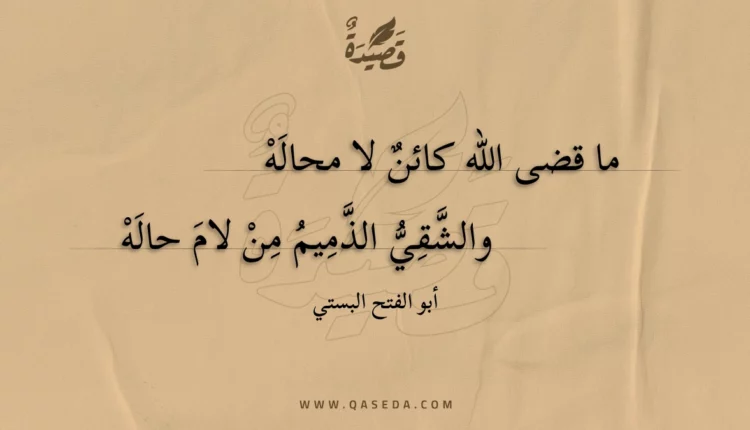 قَصِيدَةٌ
ما قضى الله كائنٌ لا محالَهْ
والشَّقِيُّ الذَّمِيمُ مِنْ لامَ حالَهْ
أبو الفتح البستي
WWW.QASEDA.COM